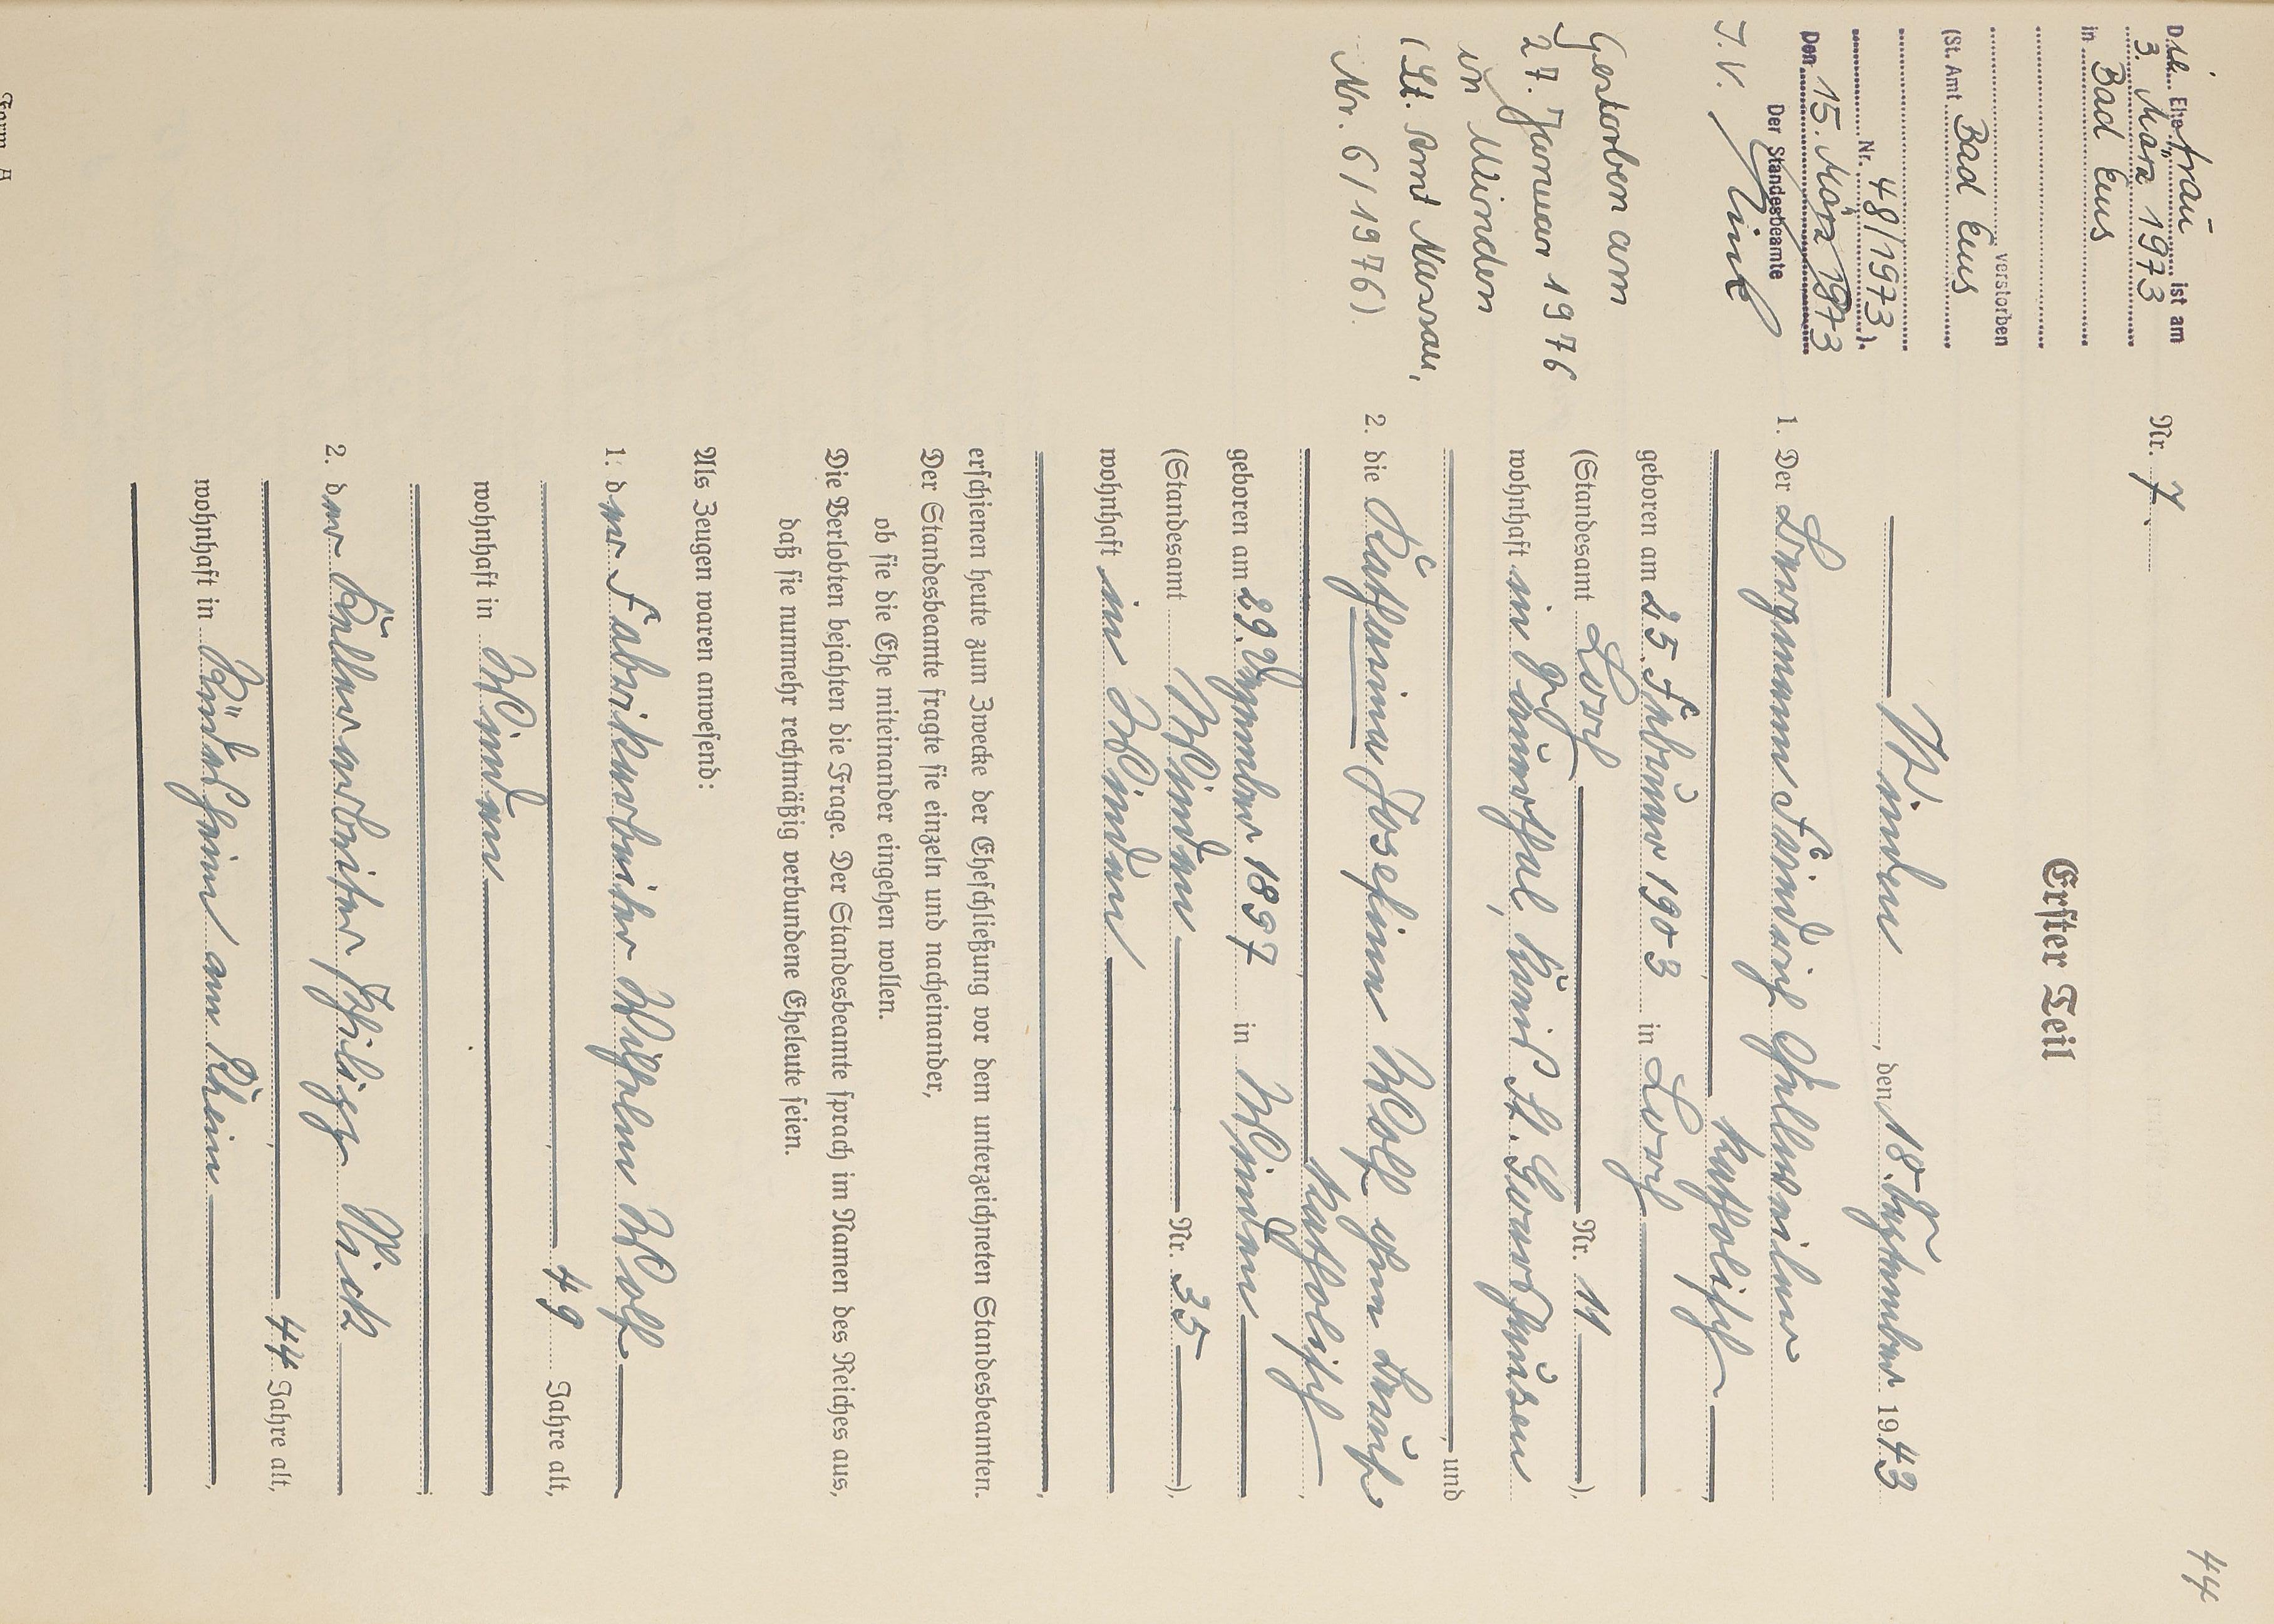 44
Nr. 7
Erster Teil
Winden, den 18. September 1943
1. Der Bergmann Heinrich
katholisch
geboren am 25. Februar 1903 in Lorch
(Standesamt Lorch Nr. 11),
wohnhaft in, Kreis St. Goarshausen
, und
2. die Katharina Josefine Wolf ohne Beruf
katholisch,
geboren am 29. Dezember 1897 in Winden
(Standesamt Winden Nr. 35),
wohnhaft in Winden
,
erschienen heute zum Zwecke der Eheschließung vor dem unterzeichneten Standesbeamten.
Der Standesbeamte fragte sie einzeln und nacheinander,
ob sie die Ehe miteinander eingehen wollen.
Die Verlobten bejahten die Frage. Der Standesbeamte sprach im Namen des Reiches aus,
daß sie nunmehr rechtmäßig verbundene Eheleute seien.
Als Zeugen waren anwesend:
1. der Fabrikarbeiter Wilhelm Wolf
, 49 Jahre alt,
wohnhaft in Winden
2. der Kellerarbeiter Philipp Nick
, 44 Jahre alt,
wohnhaft in Rüdesheim am Rhein,
Die Ehefrau ist am
3. März 1973
in Bad Ems
verstorben
(St. Amt Bad Ems
Nr. 48/1973).
Den 15. März 1973
Der Standesbeamte
I.V.
Gestorben am
27. Januar 1976
in Winden
(St. Amt Nassau,
Nr. 6/1976).
Form. A